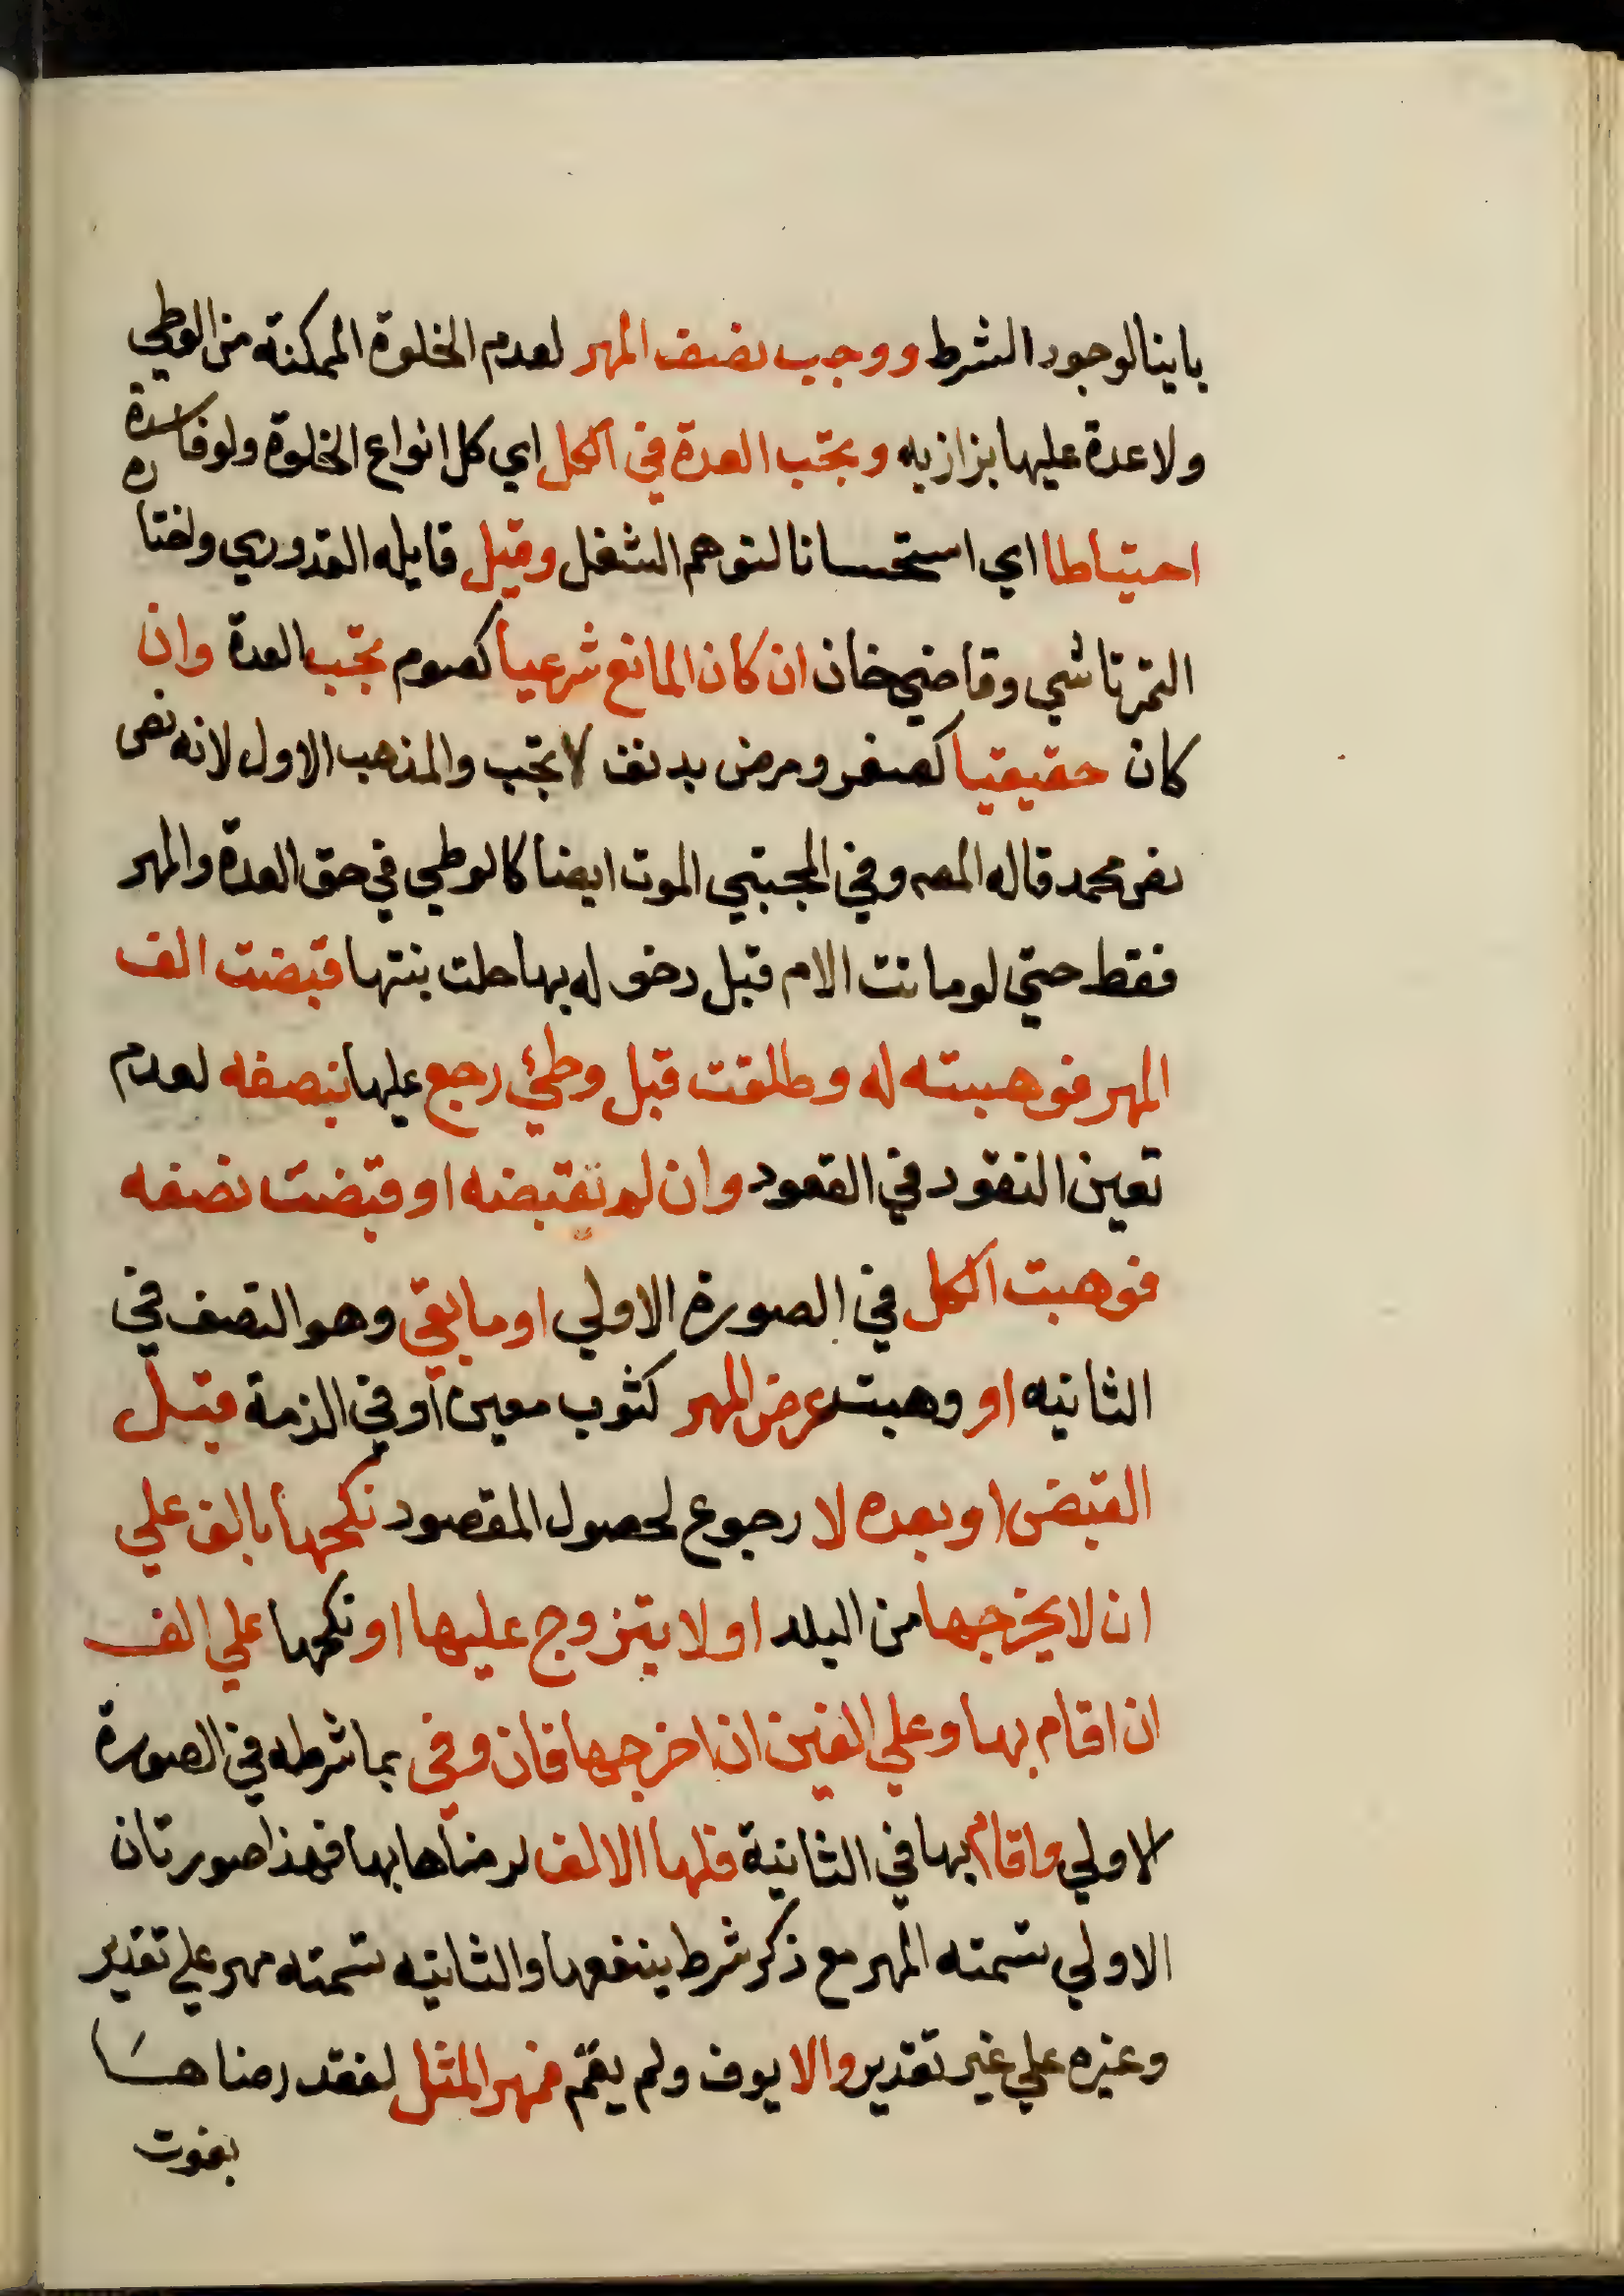 باينا لوجود الشرط ووجب نصف المهر لعدم الخلوة الممكنة من الوطي
ولا عدة عليها بزازيه وتجب العدة في الكل اي كل انواع الخلوة ولو فاسدة
احتياطا اي استحسانا لتوهم الشغل وقيل قايله القدوري واختاره
التمرتاشي وقاضي خان ان كان المانع شرعيا كصوم تجب العدة وان
كان حقيقيا كصغر ومرض مدنف لا تجب والمذهب الاول لانه نص
نص محمد قاله المصه وفي المجتبي الموت ايضا كالوطي في حق العدة والمهر
فقط حتي لو ماتت الام قبل دخوله بها حلت بنتها قبضت الف
المهر فوهبته له وطلقت قبل وطئ رجع عليها بنصفه لعدم
تعين النقود في العقود وان لم تقبضه او قبضت نصفه
فوهبت الكل في الصورة الاولي او ما بقي وهو النصف في
الثانيه او وهبت عرض المهر كثوب معين او في الذمة قبل
القبض او بعده لا رجوع لحصول المقصود نكحها بالف علي
ان لا يخرجها من البلد او لا يتزوج عليها او نكحها علي الف
ان اقام بها وعلي الفين ان اخرجها فان وفي بما شرطه في الصورة
الاولي واقام بها في الثانية فلها الالف لرضاها بها فهذا صورتان
الاولي تسمته المهر مع ذكر شرط ينفعها والثانيه تسمته مهر علي تقدير
وغيره علي غير تقدير والا يوف ولم يقم فمهر المثل لفقد رضاها
بفوت